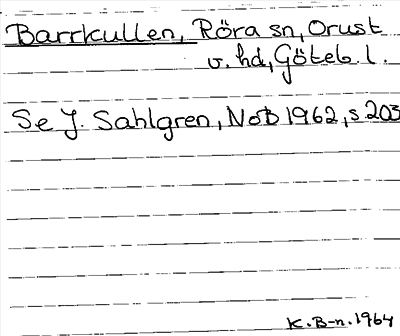 Barrkullen, Röra sn, Orust
v. hd, Göteb. l.
Se J. Sahlgren, NoB 1962, s 203
K. B-n. 1964